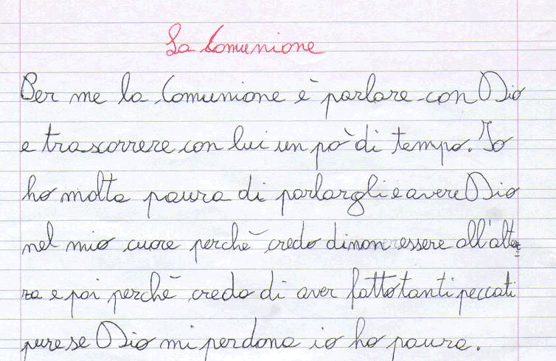 La Comunione
Per me la Comunione è parlare con Dio
e trascorrere con lui un pò di tempo. Io
ho molta paura di parlargli e avere Dio
nel mio cuore perchè credo di non essere all'altez
za e poi perchè credo di aver fatto tanti peccati
pure se Dio mi perdona io ho paura.